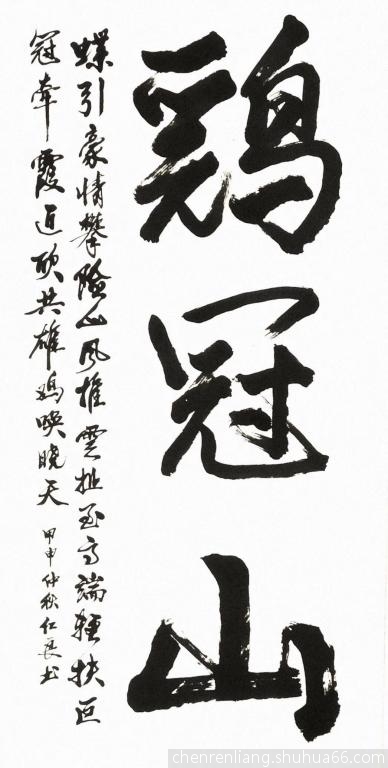 鷄冠山
蝶引豪情攀險山風推雲扯至高端輕扶巨
冠牽霞近欣共雄鷄喚曉天
甲申仲秋仁良书
chenrenliang.shuhua66.com